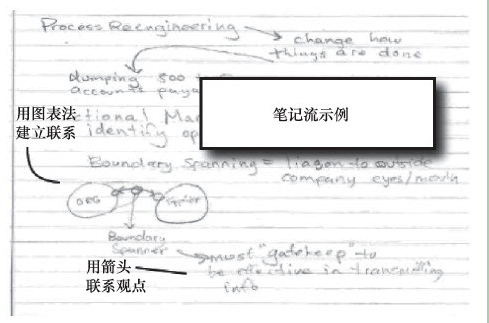 Process Reengineering
change how
things are done
dumping 800
accounts paya
笔记流示例
ctional Ma
identify op
用图表法
建立联系
Boundary Spanning = liason to outside
company eyes/mouth
ORG
Boundary
Spanner
must "gatekeep" to
be effective in transmitting
info
用箭头
联系观点